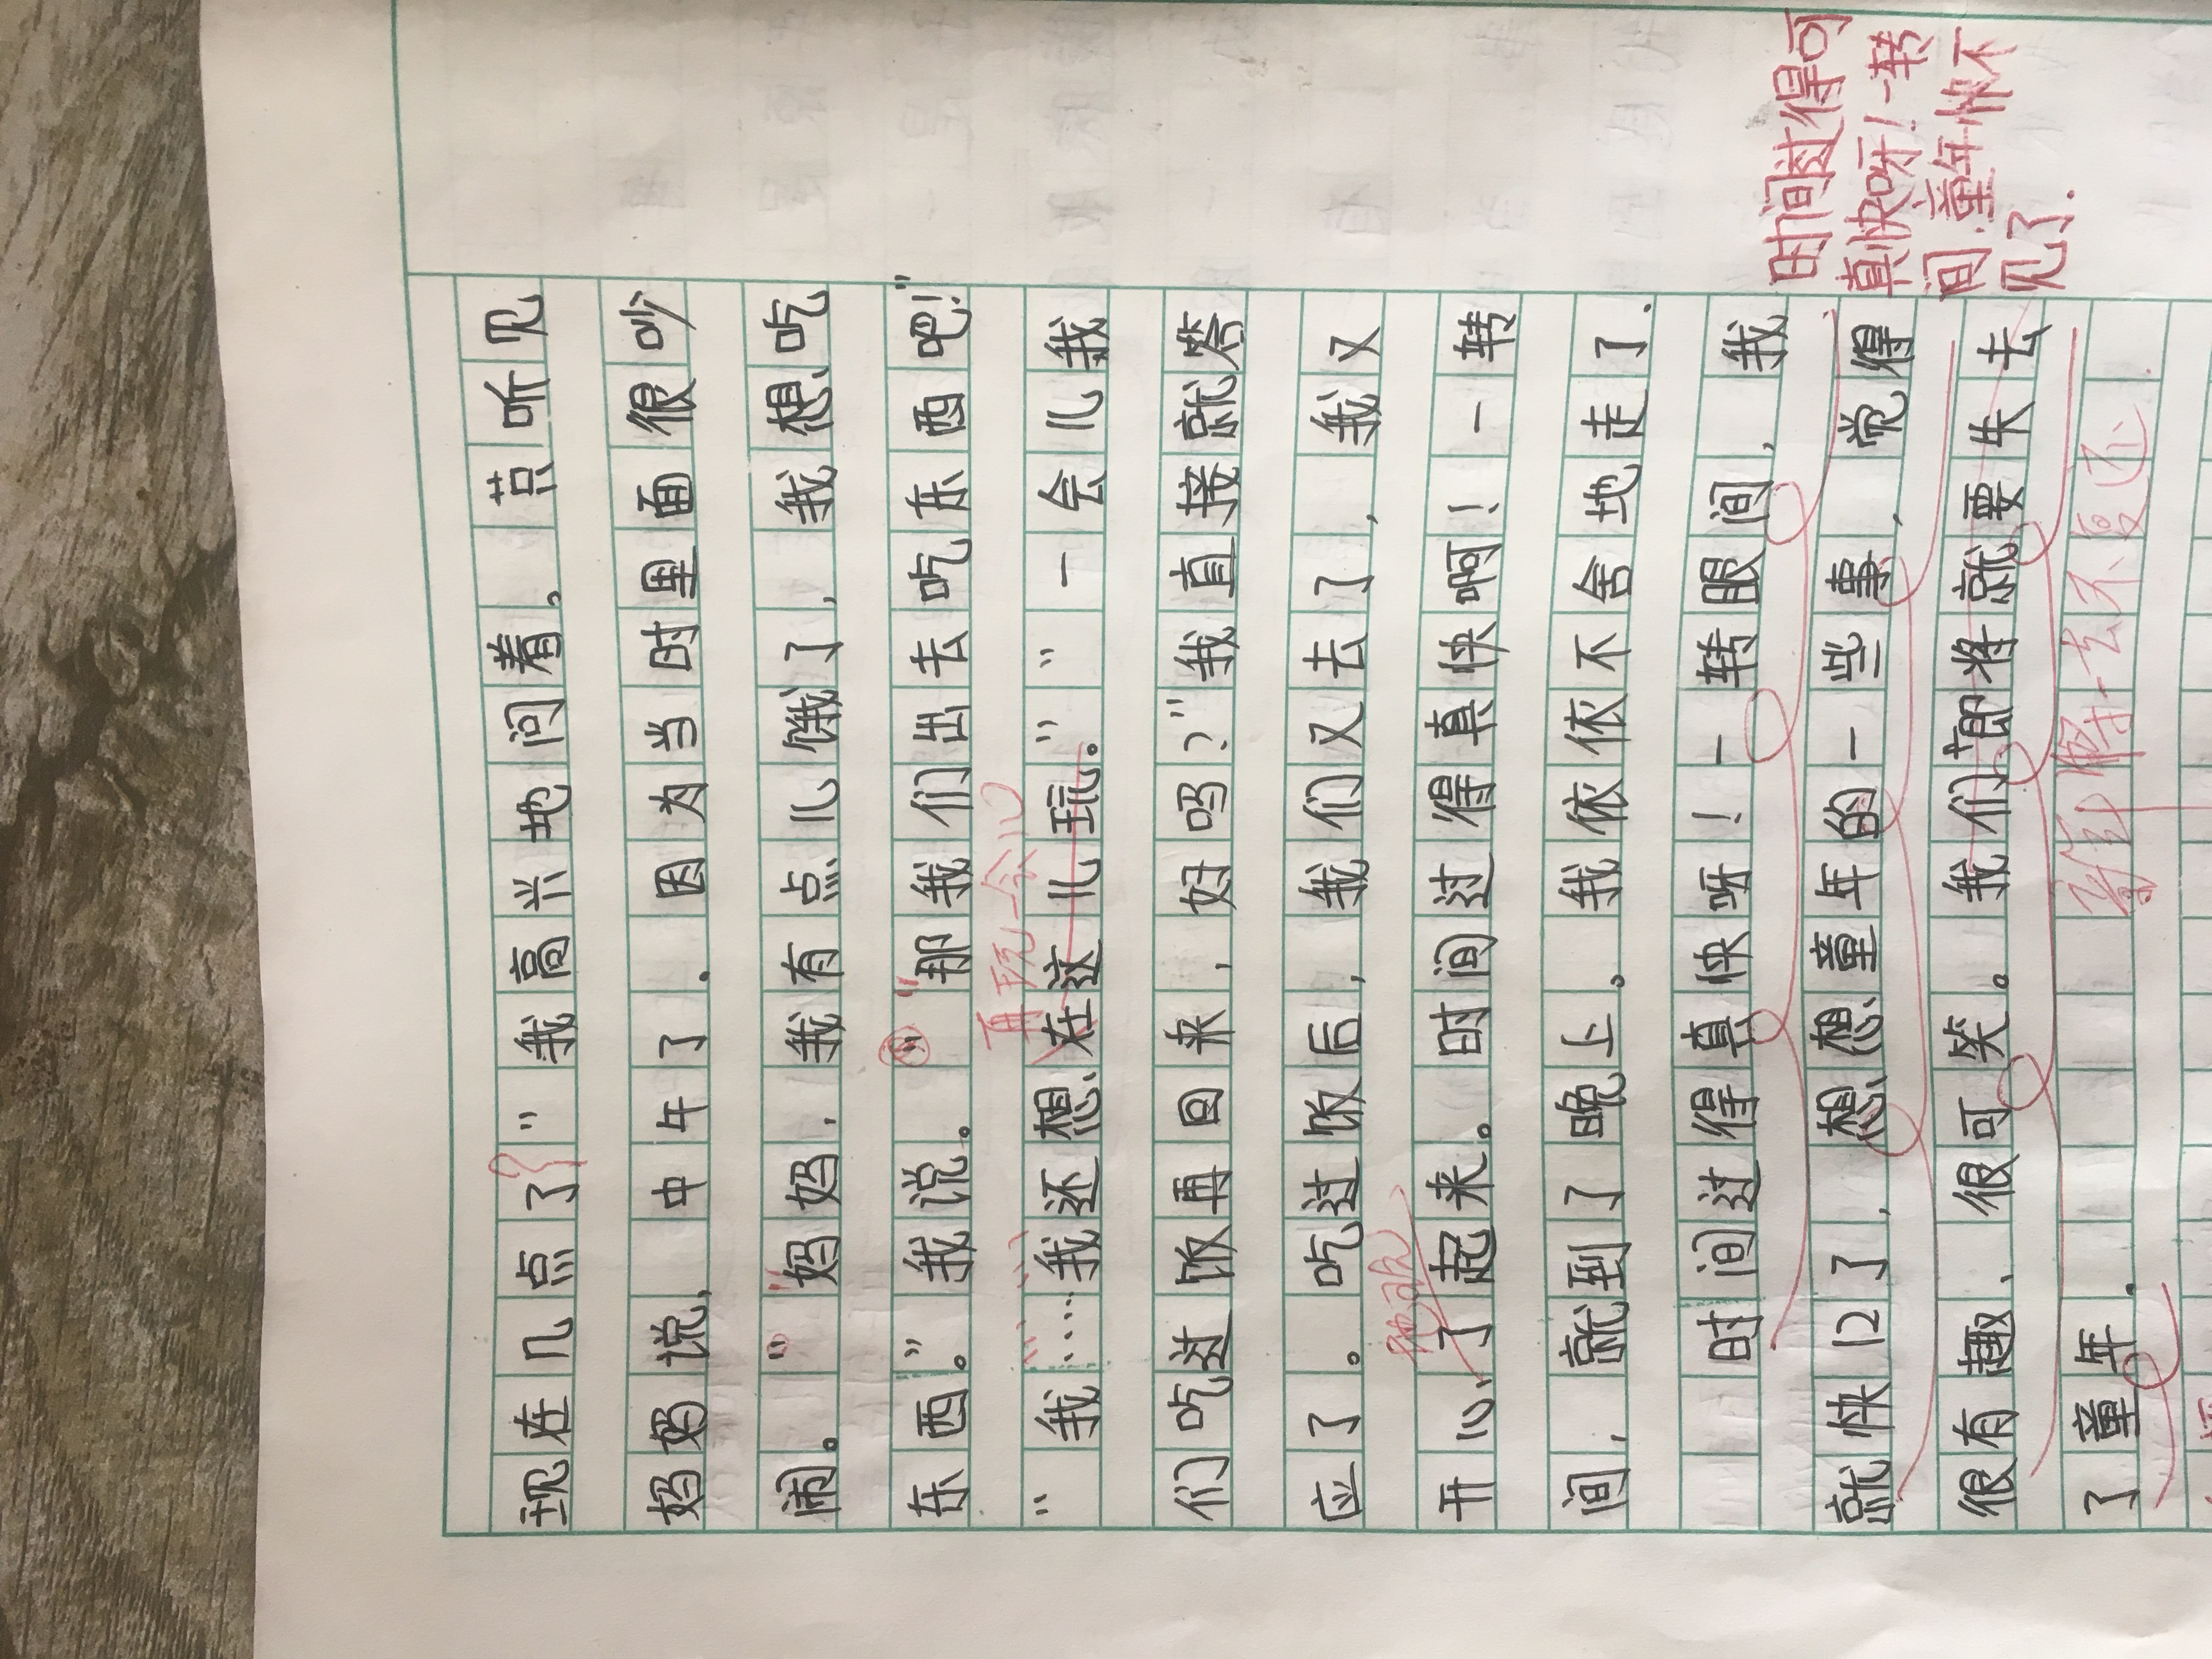 现在几点了？”我高兴地问着。只听见
妈妈说，中午了．因为当时里面很吵
闹。“妈妈，我有点儿饿了，我想吃
东西。”我说。“那我们出去吃东西吧！”
“我……我还想在这儿玩。”“一会儿我
再玩一会儿
们吃过饭再回来，好吗？”我直接就答
应了。吃过饭后，我们又去了，我又
开心了起来。时间过得真快啊！一转
间，就到了晚上。我依依不舍地走了．
时间过得真快呀！一转眼间，我
就快12了，想想童年的一些事，觉得
很有趣、很可笑。我们即将就要失去
了童年．
时间过得可
真快呀！一转
间．童年快不
见了．
一去不复返